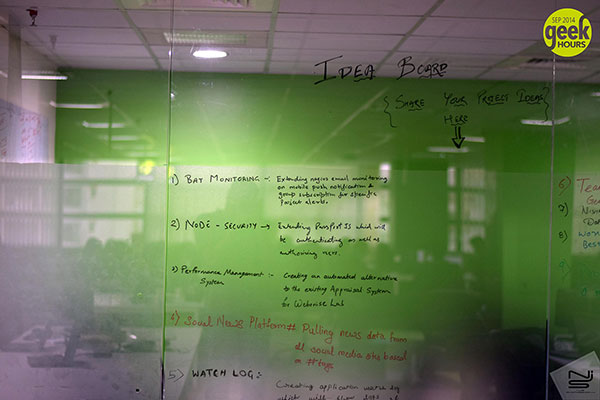 SEP 2014
geek
HOURS
IDEA BOARD
{ SHARE YOUR PROJECT IDEAS }
HERE
1) BAY MONITORING :- Extending nagios email monitoring
on mobile push notification &
group subscription for specific
Project alerts.
2) NODE - SECURITY → Extending Passport JS which will
be authenticating as well as
authorizing users.
3) Performance Management :- Creating an automated alternative
System to the existing Appraisal System
for Webonise Lab
4) Social News Platform # Pulling news data from
all social media sites based
on # tags
5) WATCH LOG :-
Creating application
6) Team
7)
8)
9